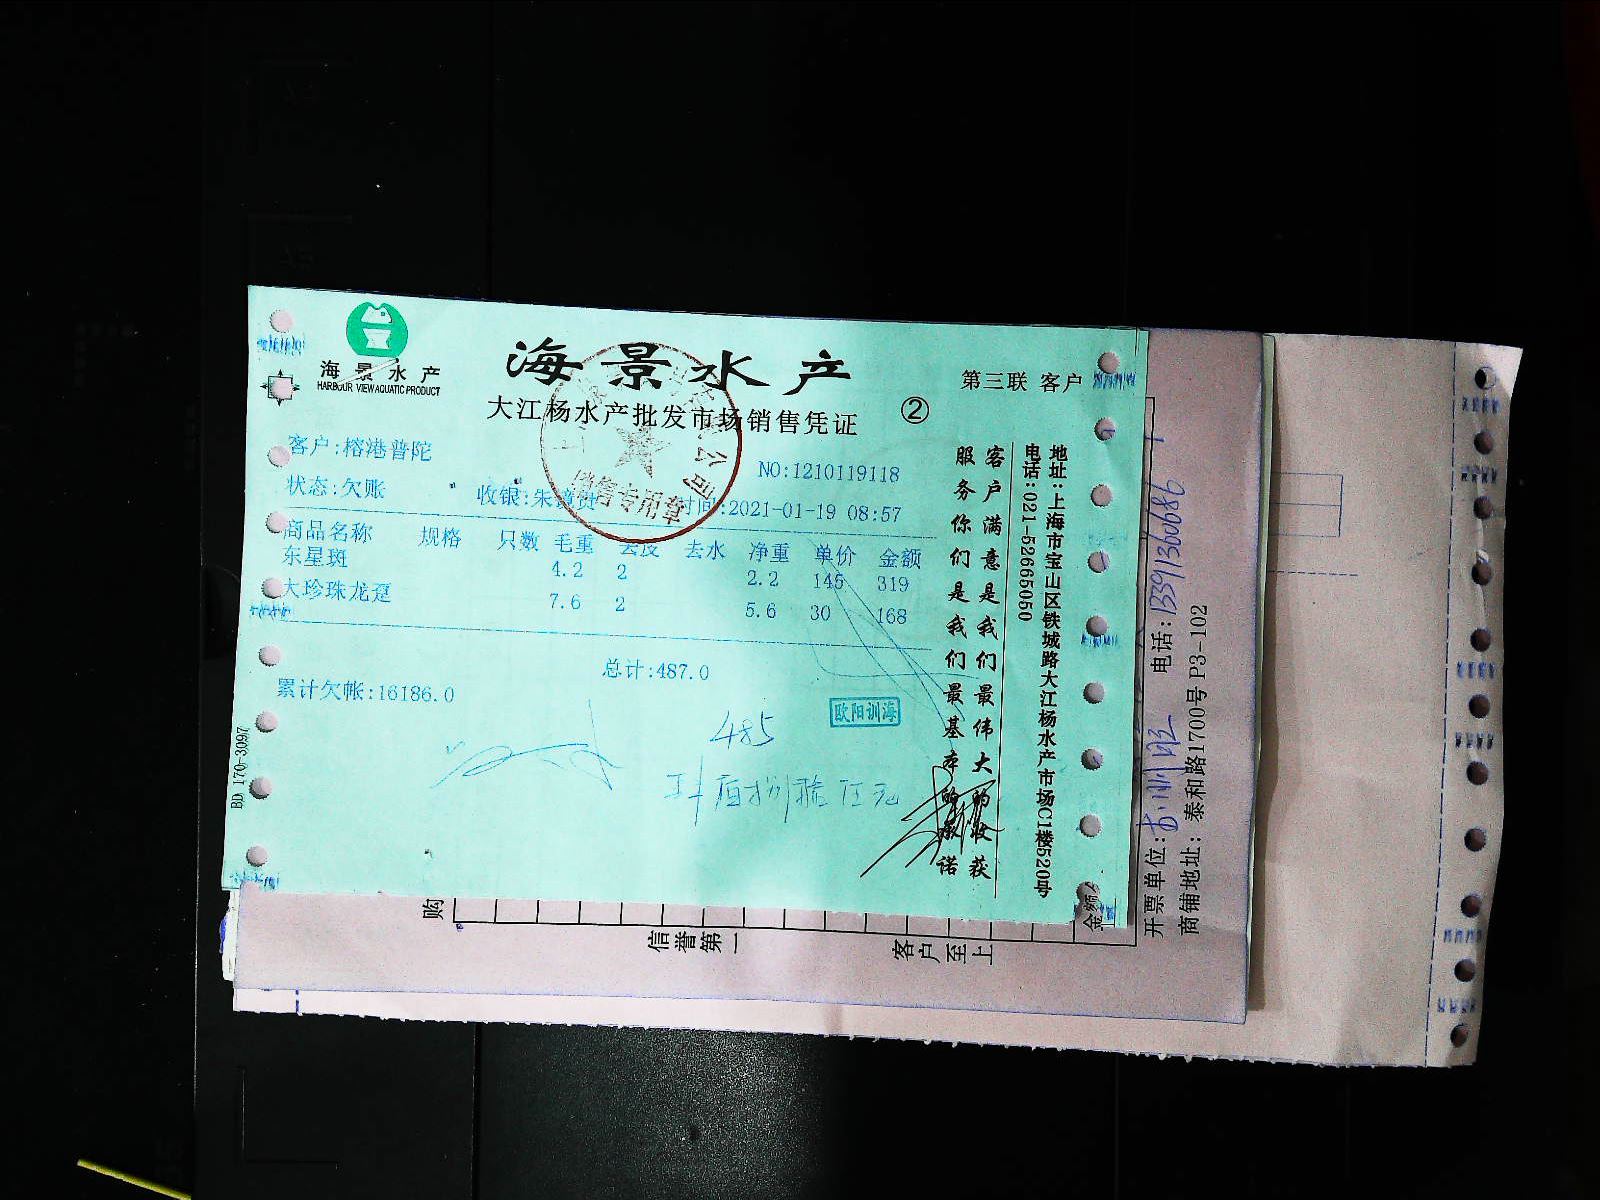 海景水产
HARBOUR VIEW AQUATIC PRODUCT
海景水产
大江杨水产批发市场销售凭证
②
第三联 客户
客户:榕港普陀
NO:1210119118
状态:欠账 收银:朱 时间:2021-01-19 08:57
商品名称 规格 只数 毛重 去皮 去水 净重 单价 金额
东星斑 4.2 2 2.2 145 319
大珍珠龙趸 7.6 2 5.6 30 168
总计:487.0
累计欠帐:16186.0
欧阳训海
485
销售专用章
公司
BD 170-3097
客户满意是我们最伟大的收获
服务你们是我们最基本的承诺
地址:上海市宝山区铁城路大江杨水产市场C1楼520号
电话:021-52665050
购
信誉第一
客户至上
金额
开票单位: 电话:13391360686
商铺地址: 泰和路1700号 P3-102